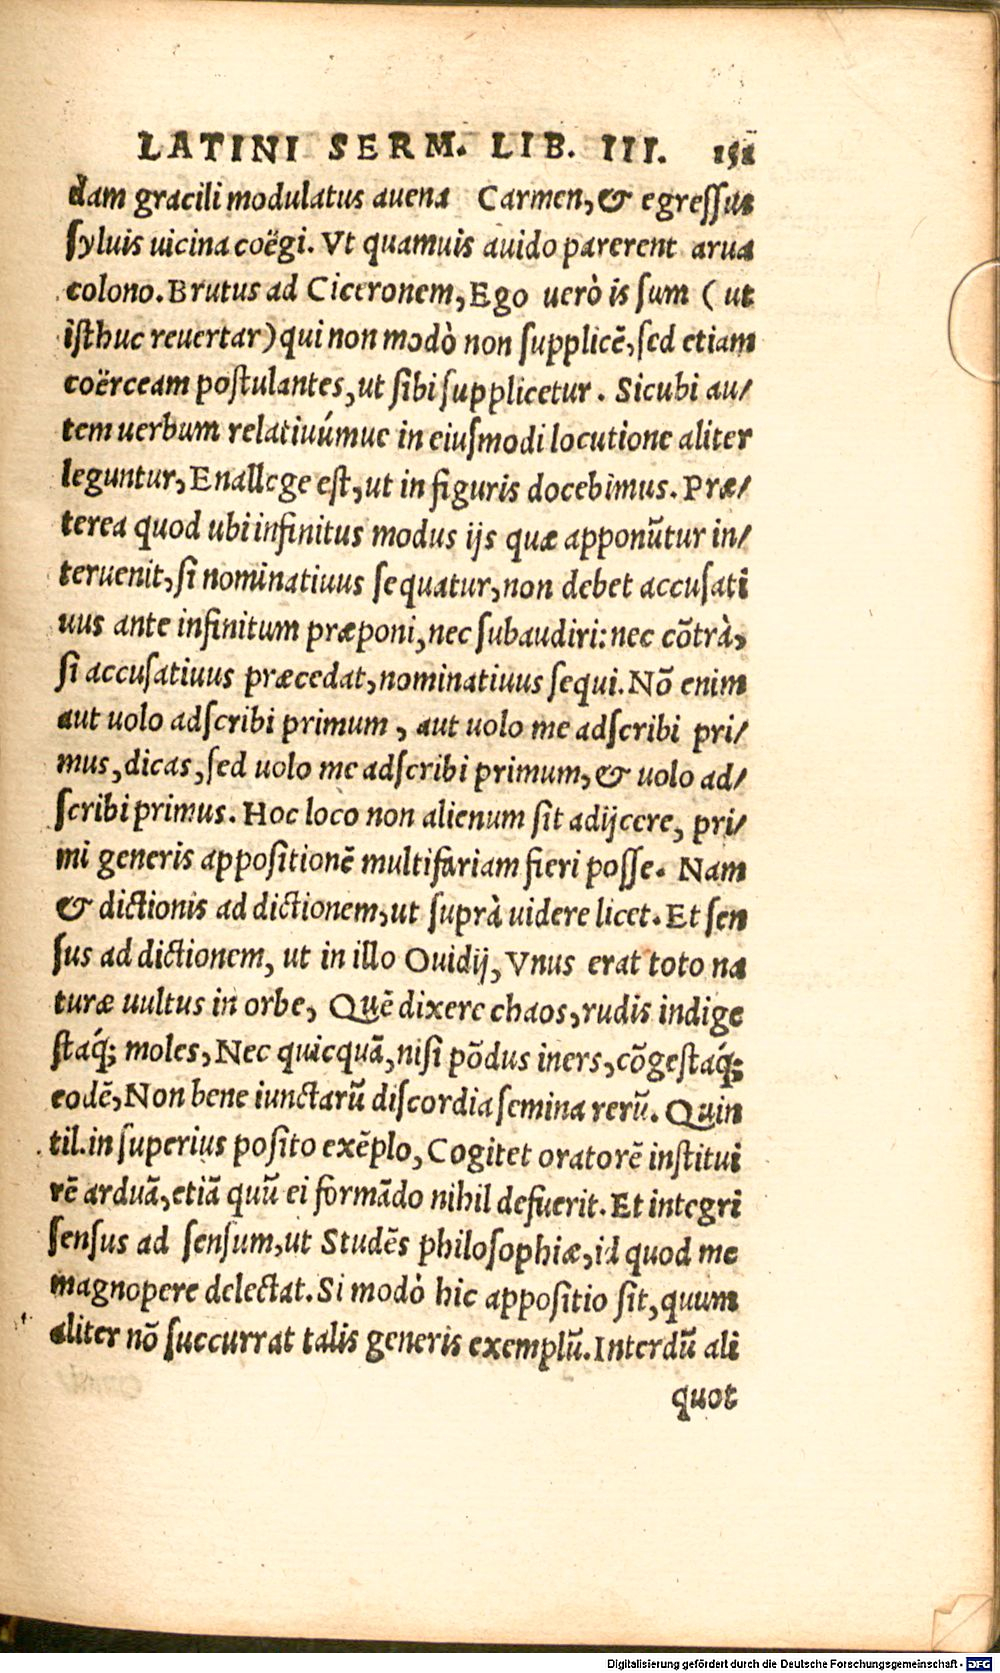 LATINI SERM. LIB. III. 151
dam gracili modulatus auena Carmen, & egressus
syluis uicina coëgi. Vt quamuis auido parerent arua
colono. Brutus ad Ciceronem, Ego uerò is sum ( ut
isthuc reuertar) qui non modò non supplicē, sed etiam
coërceam postulantes, ut sibi supplicetur. Sicubi au/
tem uerbum relatiuúmue in eiusmodi locutione aliter
leguntur, Enallege est, ut in figuris docebimus. Præ/
terea quod ubi infinitus modus ijs quæ apponūtur in/
teruenit, si nominatiuus sequatur, non debet accusati
uus ante infinitum præponi, nec subaudiri: nec cōtrà,
si accusatiuus præcedat, nominatiuus sequi. Nō enim
aut uolo adscribi primum, aut uolo me adscribi pri/
mus, dicas, sed uolo me adscribi primum, & uolo ad/
scribi primus. Hoc loco non alienum sit adijcere, pri/
mi generis appositionē multifariam fieri posse. Nam
& dictionis ad dictionem, ut suprà uidere licet. Et sen
sus ad dictionem, ut in illo Ouidij, Vnus erat toto na
turæ uultus in orbe, Quē dixere chaos, rudis indige
staq́; moles, Nec quicquā, nisi pōdus iners, cōgestaq́;
eodē, Non bene iunctarū discordia semina rerū. Quin
til. in superius posito exēplo, Cogitet oratorē institui
rē arduā, etiā quū ei formādo nihil defuerit. Et integri
sensus ad sensum, ut Studēs philosophiæ, id quod me
magnopere delectat. Si modò hic appositio sit, quum
aliter nō succurrat talis generis exemplū. Interdū ali
quot
Digitalisierung gefördert durch die Deutsche Forschungsgemeinschaft - DFG